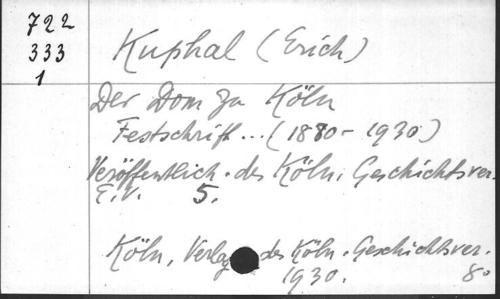 722
333
1
Kuphal (Erich)
Der Dom zu Köln
Festschrift...(1880-1930)
Veröffentlich. des Köln. Geschichtsver.
E.V. 5.
Köln, Verlag des Köln. Geschichtsver.
1930. 8°